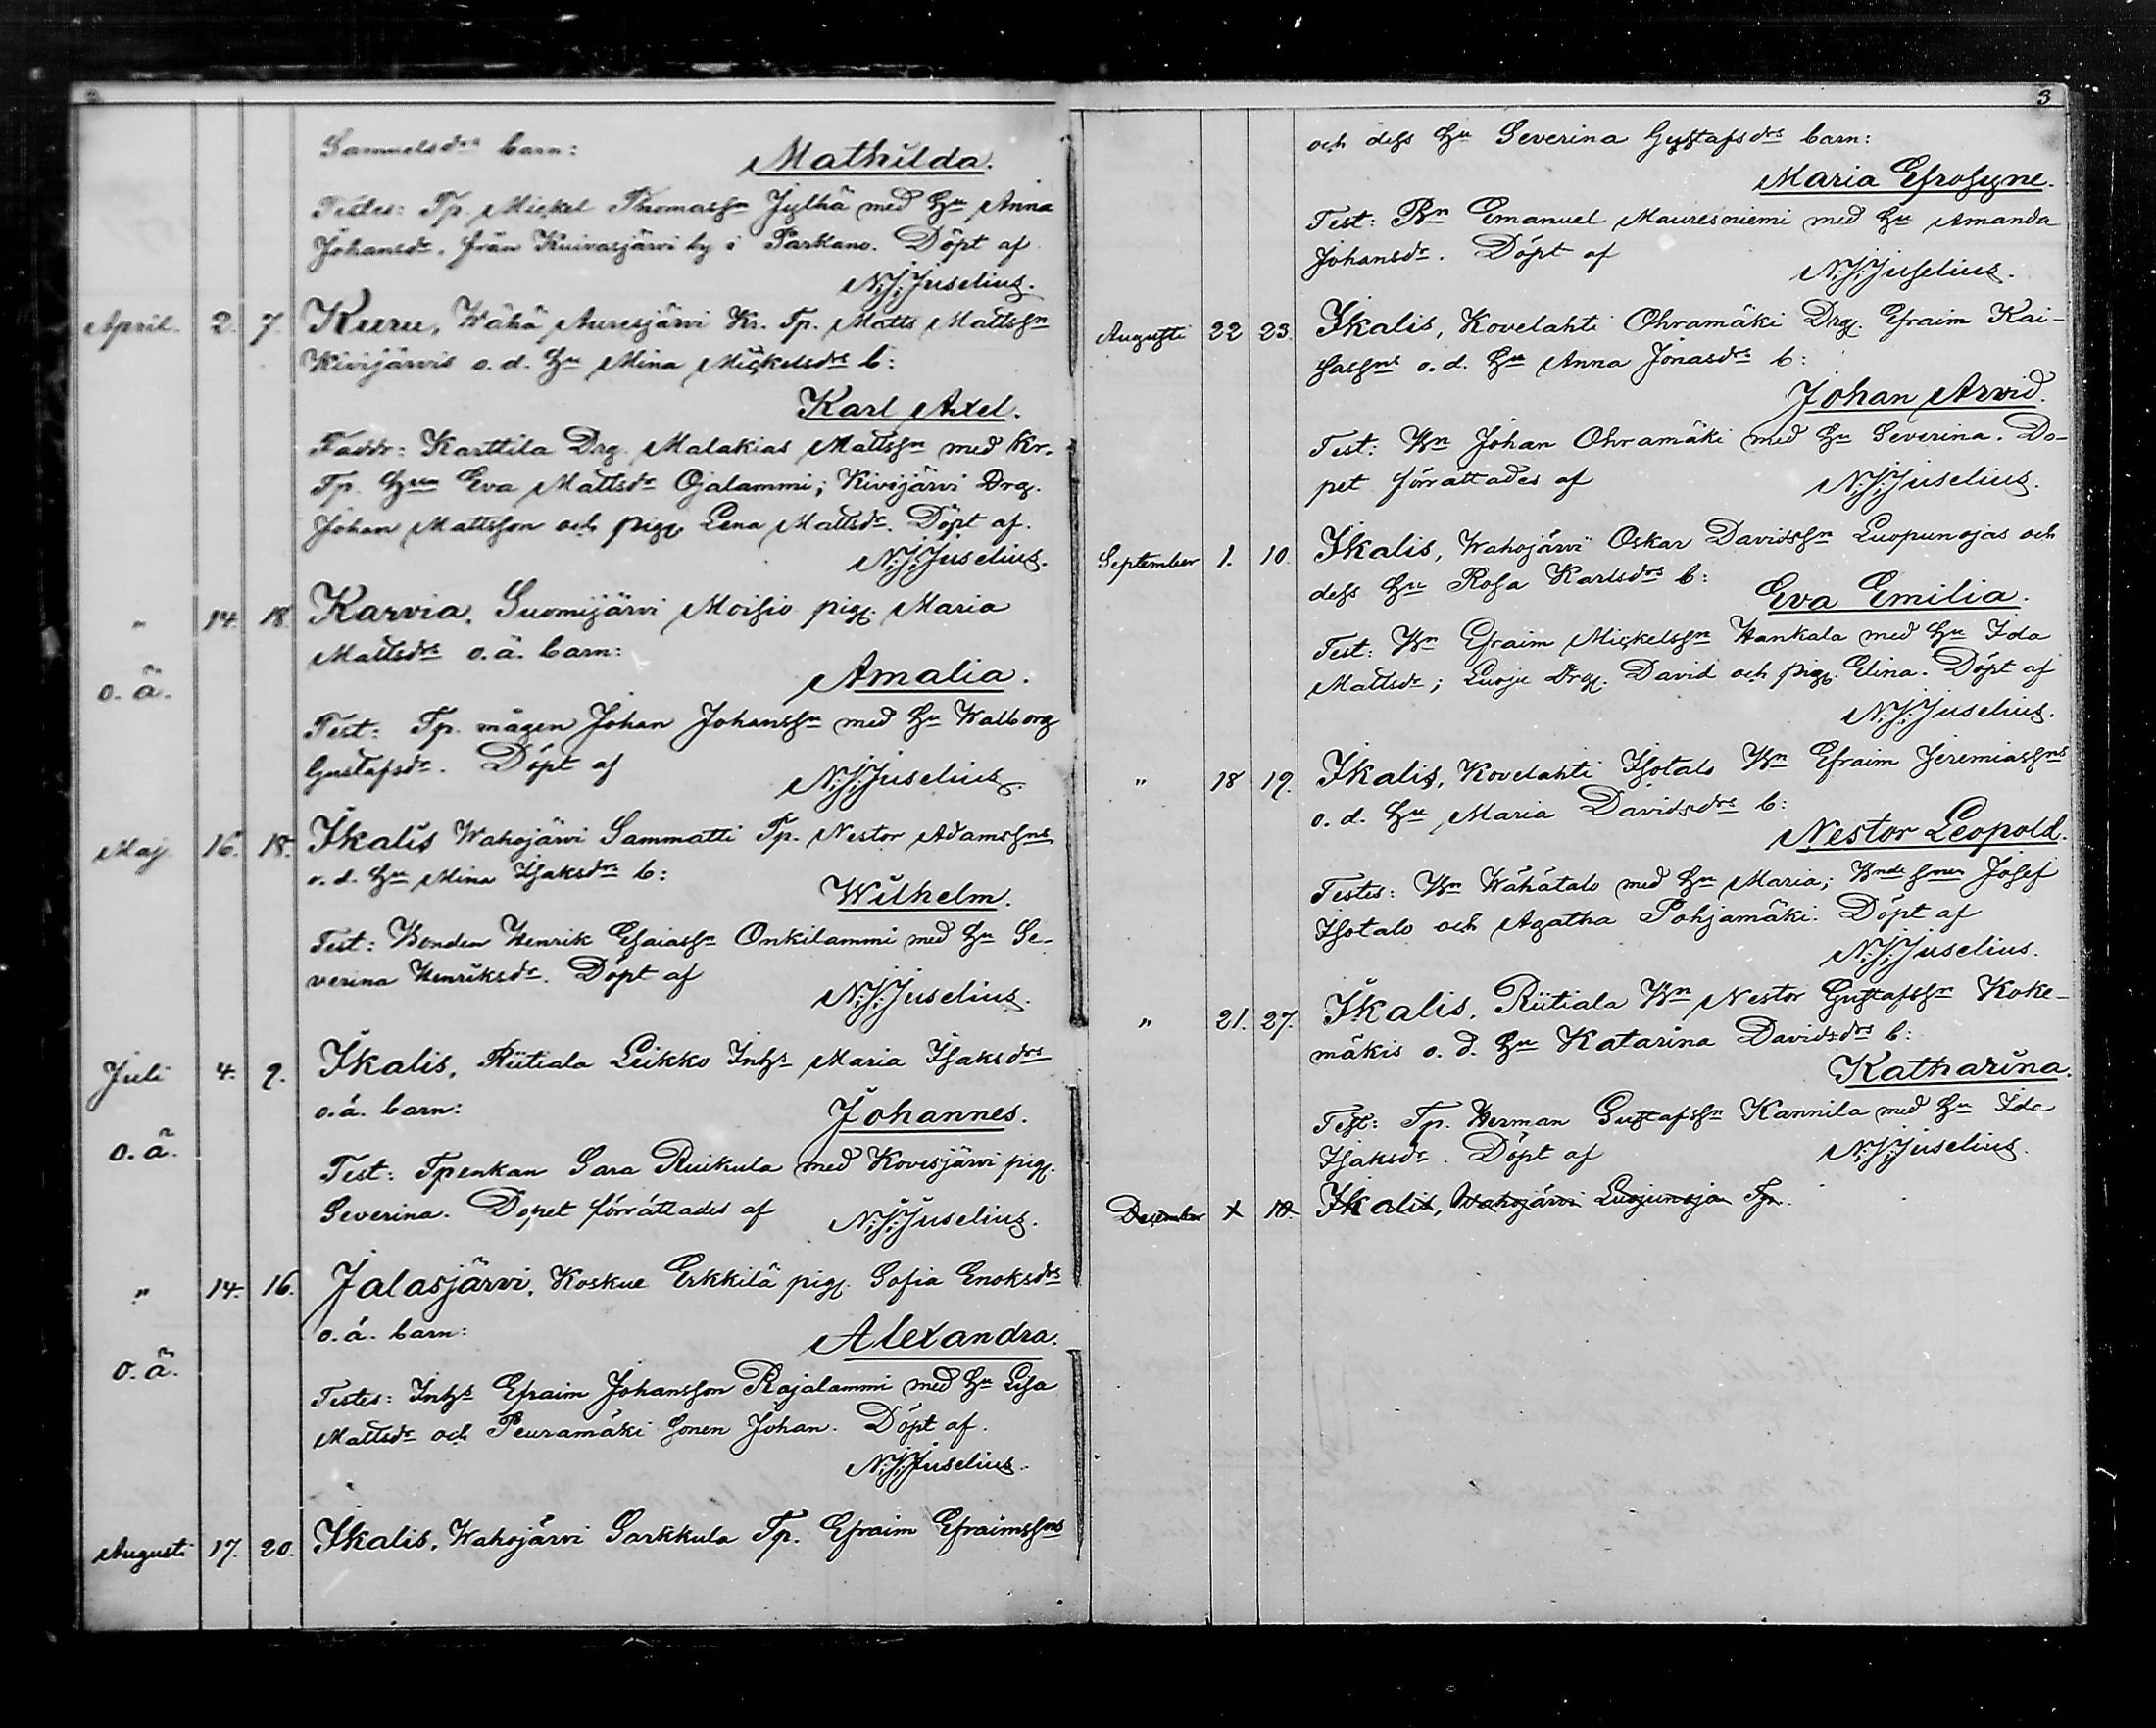 2
Samuelsdrs barn:
Mathilda.
Testes: Tp. Mickel Thomassn Jylhä med Hu Anna
Johansdr. från Kuivasjärvi by i Parkano. Döpt af
N:J:Juselius.
April. 2. 7. Kuru, Wähä Auresjärvi Kr. Tp. Matts Mattssn
Kivijärvis o. d. Hu Mina Mickelsdrs b:
Karl Axel.
Faddr: Karttila Drg. Malakias Mattssn med Kr.
Tp. Hun Eva Mattsdr Ojalammi; Kivijärvi Drg.
Johan Mattsson och pig. Lena Mattsdr. Döpt af.
N:J:Juselius.
" 14. 18. Karvia, Suomijärvi Moisio pig. Maria
Mattsdrs o.ä. barn:
o. ä.
Amalia.
Test: Tp. mågen Johan Johanssn med Hu Walborg
Gustafsdr. Döpt af
N:J:Juselius.
Maj. 16. 18. Ikalis Wahojärvi Sammatti Tp. Nestor Adamssns
o. d. Hu Mina Isaksdrs b:
Wilhelm.
Test: Bonden Henrik Esaiassn Onkilammi med Hu Se-
verina Henriksdr. Döpt af
N:J:Juselius.
Juli 4. 9. Ikalis, Riitiala Leikko Inhs Maria Isaksdrs
o.ä. barn:
Johannes.
o. ä.
Test: Tpenkan Sara Ruikula med Kovesjärvi pig.
Severina. Dopet förrättades af
N:J:Juselius.
" 14. 16. Jalasjärvi, Koskue Erkkilä pig. Sofia Enoksdrs
o.ä. barn:
Alexandra.
o. ä.
Testes: Inhs Efraim Johansson Rajalammi med Hu Lisa
Mattsdr och Peuramäki sonen Johan. Döpt af.
N:J:Juselius.
Augusti 17. 20. Ikalis, Wahojärvi Sarkkula Tp. Efraim Efraimssns
3
och dess Hu Severina Gustafsdrs barn:
Maria Efrosyne.
Test: Bn Emanuel Mauresniemi med Hu Amanda
Johansdr. Döpt af
N:J:Juselius.
Augusti 22 23. Ikalis, Kovelahti Ohramäki Drg. Efraim Kai-
sassns o. d. Hu Anna Jonasdrs b:
Johan Arvid.
Test: Bn Johan Ohramäki med Hu Severina. Do-
pet förrättades af
N:J:Juselius.
September 1. 10. Ikalis, Wahojärvi Oskar Davidssn Luopunojas och
dess Hu Rosa Karlsdrs b:
Eva Emilia.
Test: Bn Efraim Mickelssn Hankala med Hu Ida
Mattsdr; Luoje Drg. David och pig. Elina. Döpt af
N:J:Juselius.
" 18 19. Ikalis, Kovelahti Isotalo Bn Efraim Jeremiassns
o. d. Hu Maria Davidsdrs b:
Nestor Leopold.
Testes: Bn Wähätalo med Hu Maria; Bnde sonen Josef
Isotalo och Agatha Pohjamäki. Döpt af
N:J:Juselius.
" 21. 27. Ikalis, Riitiala Bn Nestor Gustafssn Koke-
mäkis o. d. Hu Katarina Davidsdrs b:
Katharina.
Test: Tp. Herman Gustafssn Kannila med Hu Ida
Isaksdr. Döpt af
N:J:Juselius.
December 10. Ikalis, Wahojärvi Luojunoja Tp.